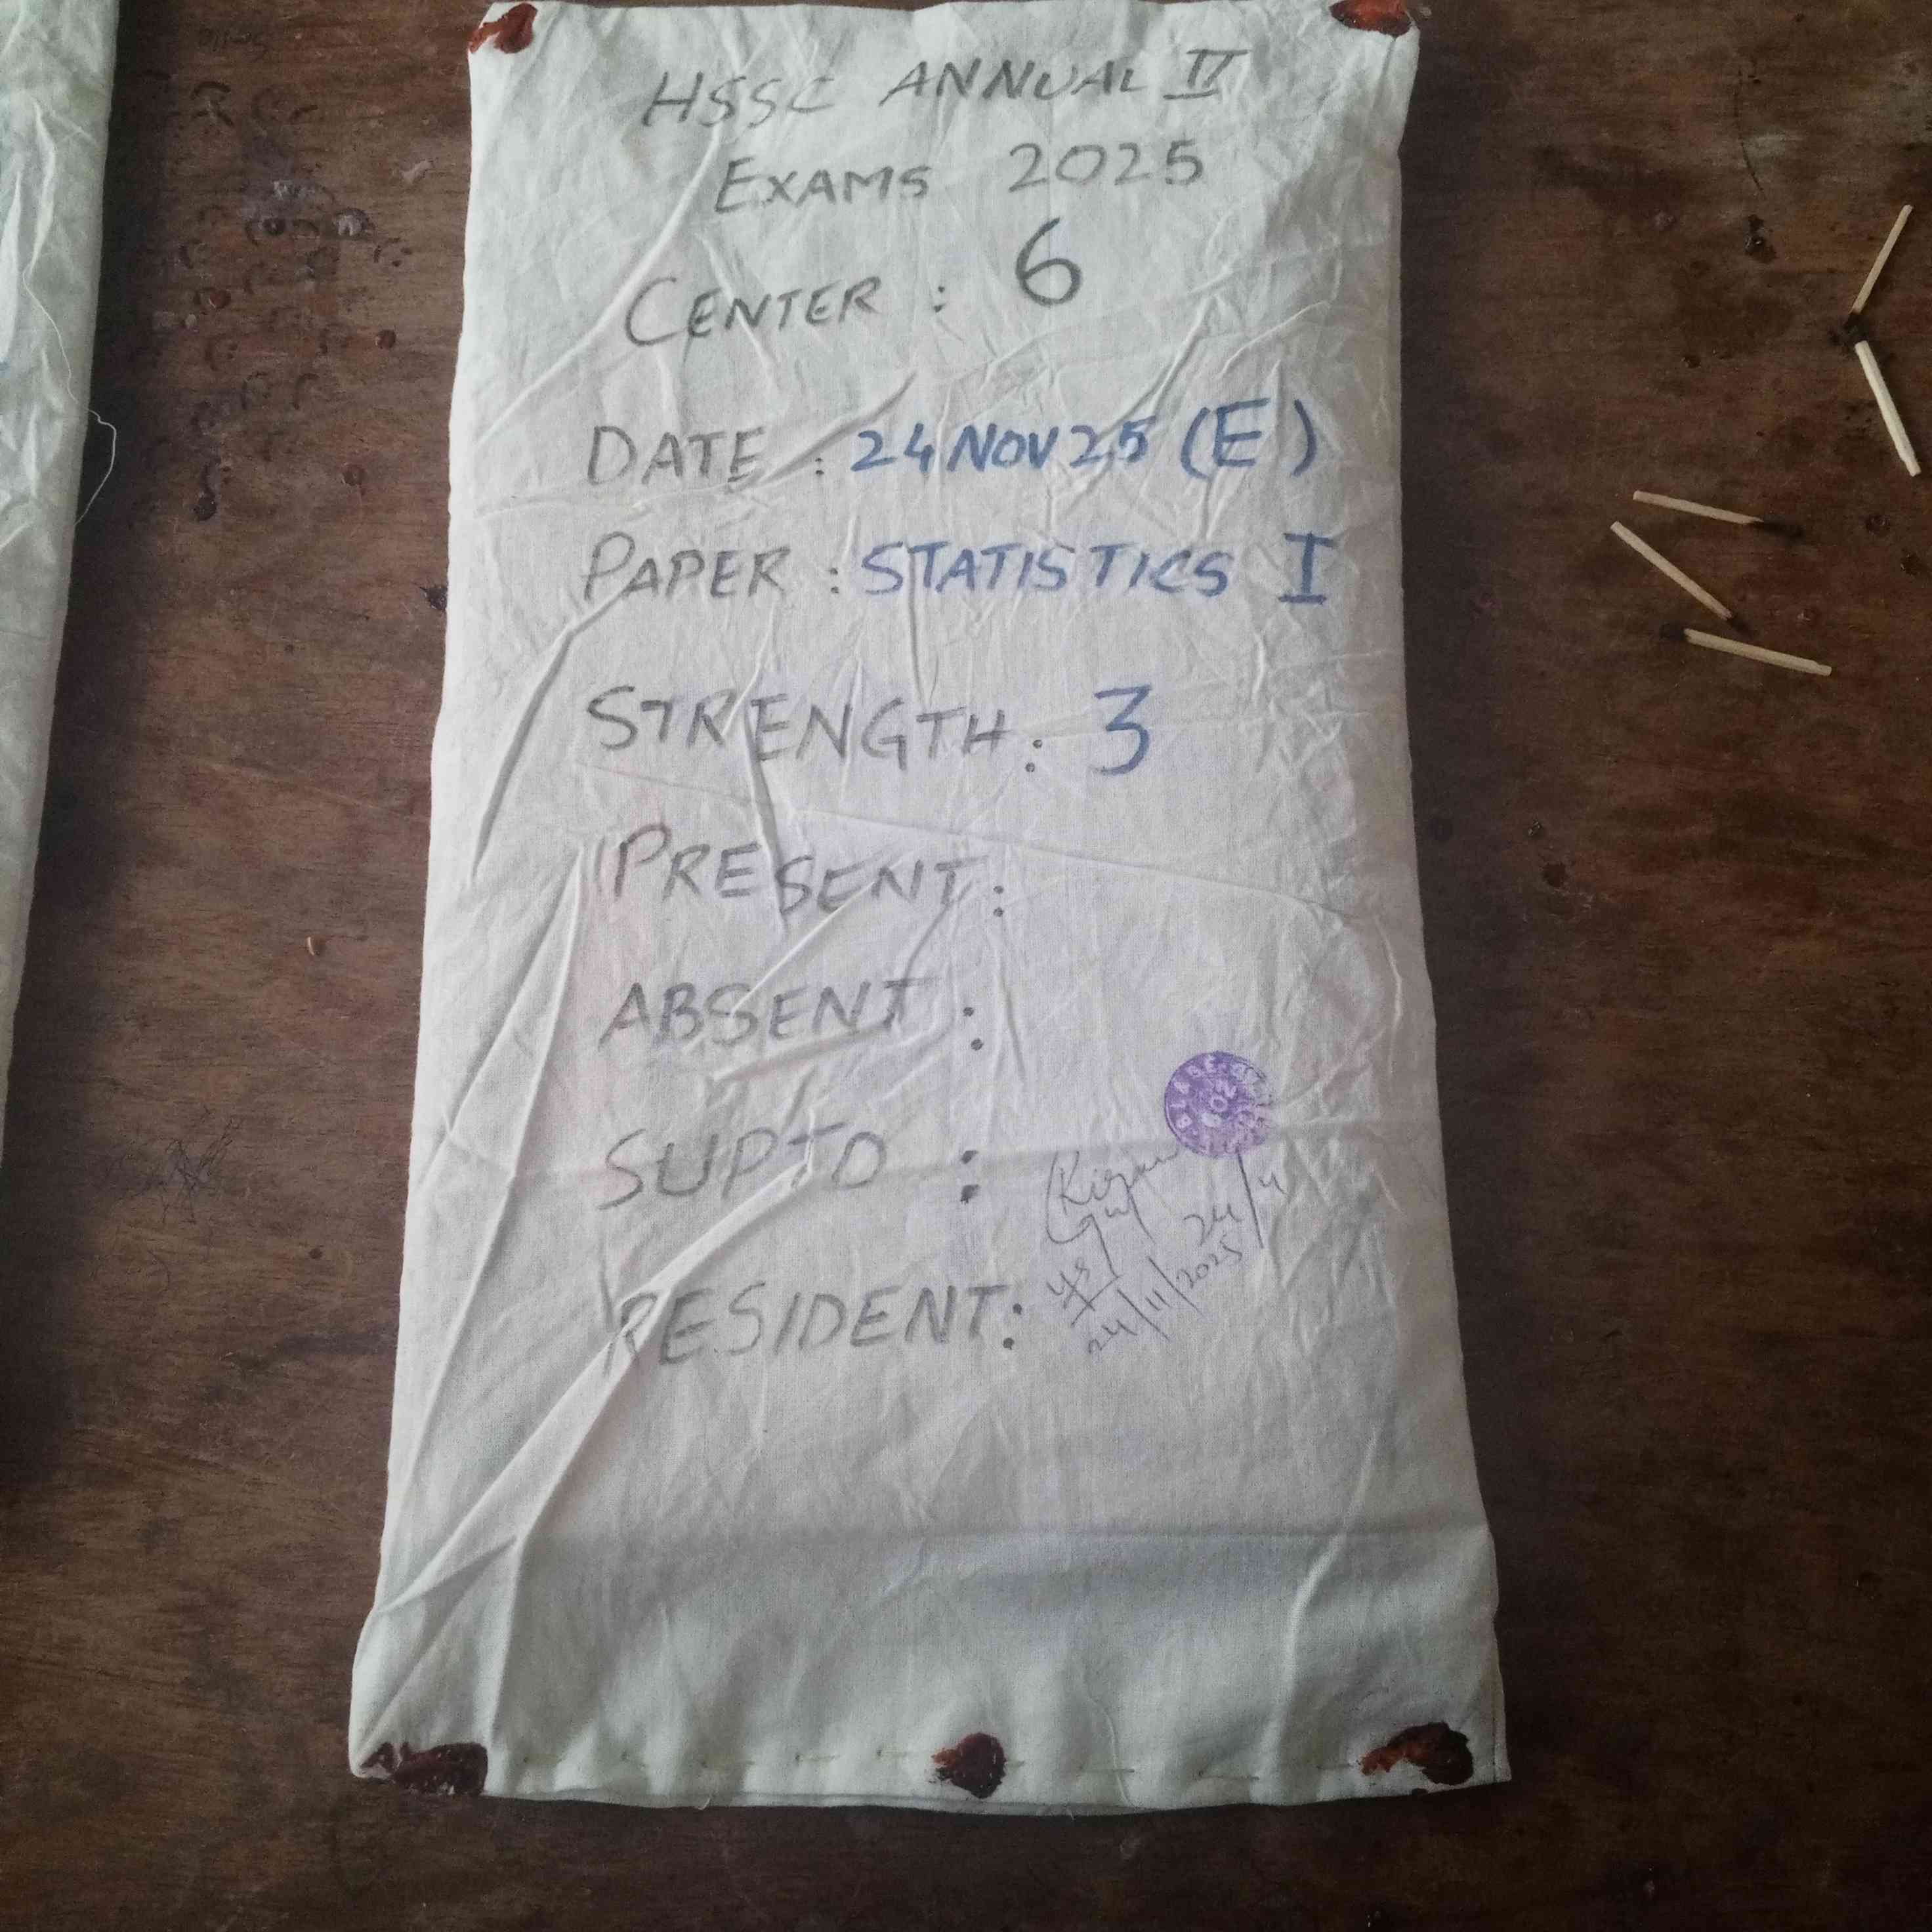 HSSC ANNUAL II
EXAMS 2025
CENTER : 6
DATE : 24 NOV 25 (E)
PAPER : STATISTICS I
STRENGTH : 3
PRESENT :
ABSENT :
SUPTD :
24/11/2025
RESIDENT :